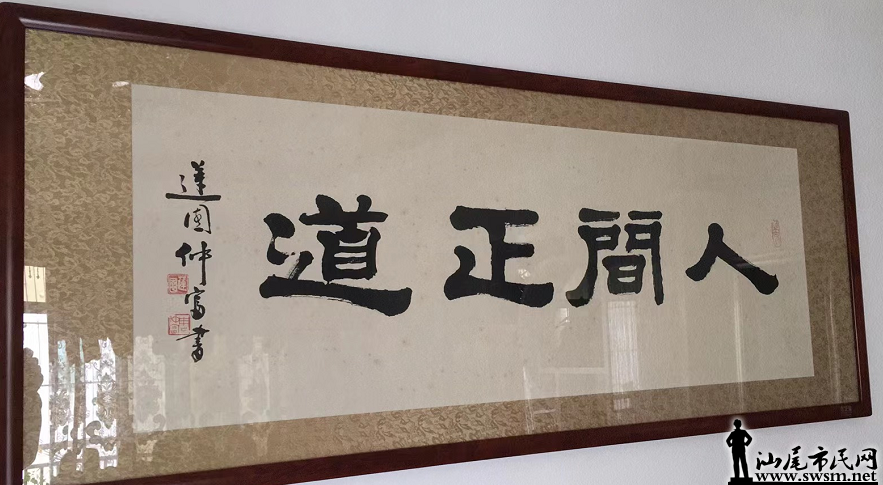 人間正道
蓮園仲富書
汕尾市民网
www.swsm.net